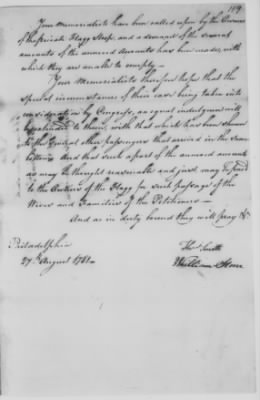 119
Your Memorialists have been called upon by the Owners
of the private Flagg Ships, and a demand of the several
amounts of the annexed Accounts has been made, with
which they are unable to comply —
Your Memorialists therefore hope that the
special circumstances of their case being taken into
consideration by Congress, an equal indulgence will
be extended to them, with that which has been shewn
to the several other passengers that arrived in the same
bottoms And that such a part of the annexed amounts
as may be thought reasonable and just may be paid
to the Owners of the Flagg for such passage of the
Wives and Families of the Petitioners —
And as in duty bound they will pray &c
Philadelphia
27th August 1781 —
Thos Smith
William